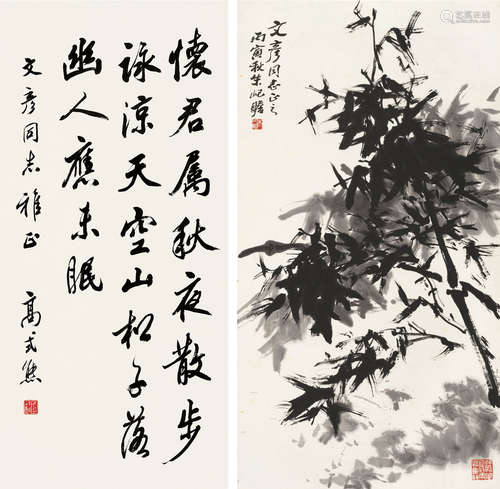 懷君属秋夜散步
詠涼天空山松子落
幽人應未眠
文彦同志雅正
高式熊
文彦同志正之
丙寅秋朱屺瞻